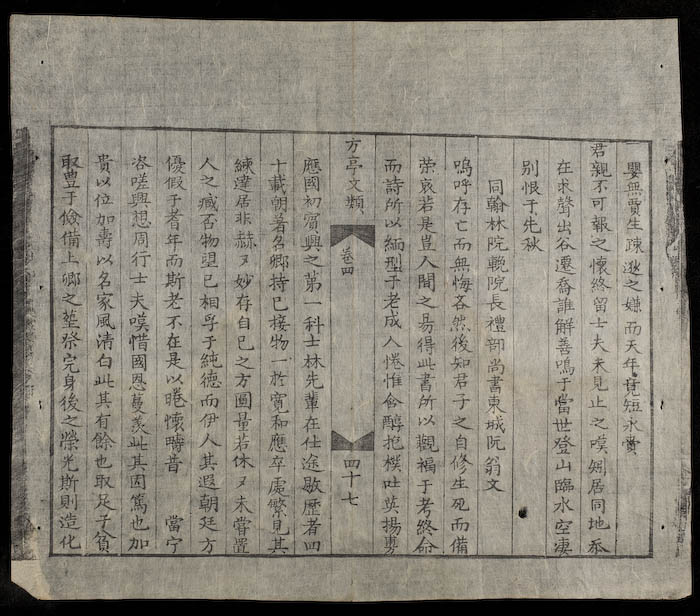 嬰無賈生疎逖之嫌而天年竟短永賫
君親不可報之懷終留士夫未見止之嘆矧居同地忝
在求聲出谷遷喬誰解善鳴于當世登山臨水空凄
別恨于先秋
同翰林院輓院長禮部尚書東城阮翁文
嗚呼存亡而無悔吝然後知君子之自修生死而備
榮哀若是豈人間之易得此書所以觀福于考終命
而詩所以緬型于老成人惓惟翁醇抱樸吐英揚
方亭文類 卷四 四十七
應國初賓興之第一科士林先輩在仕途敭歷者四
十載朝著名卿持已接物一於寬和應卒處繁見其
練達居非赫又妙存自已之方圖量若休又未嘗置
人之臧否物望已相孚于純德而伊人其遐朝廷方
優假于耆年而斯老不在是以睠懷疇昔 當宁
咨嗟興想周行士夫嘆惜國恩蔓羨此其因篤也加
貴以位加壽以名家風清白此其有餘也取足于貧
取豊于儉備上卿之塟祭完身後之榮光斯則造化